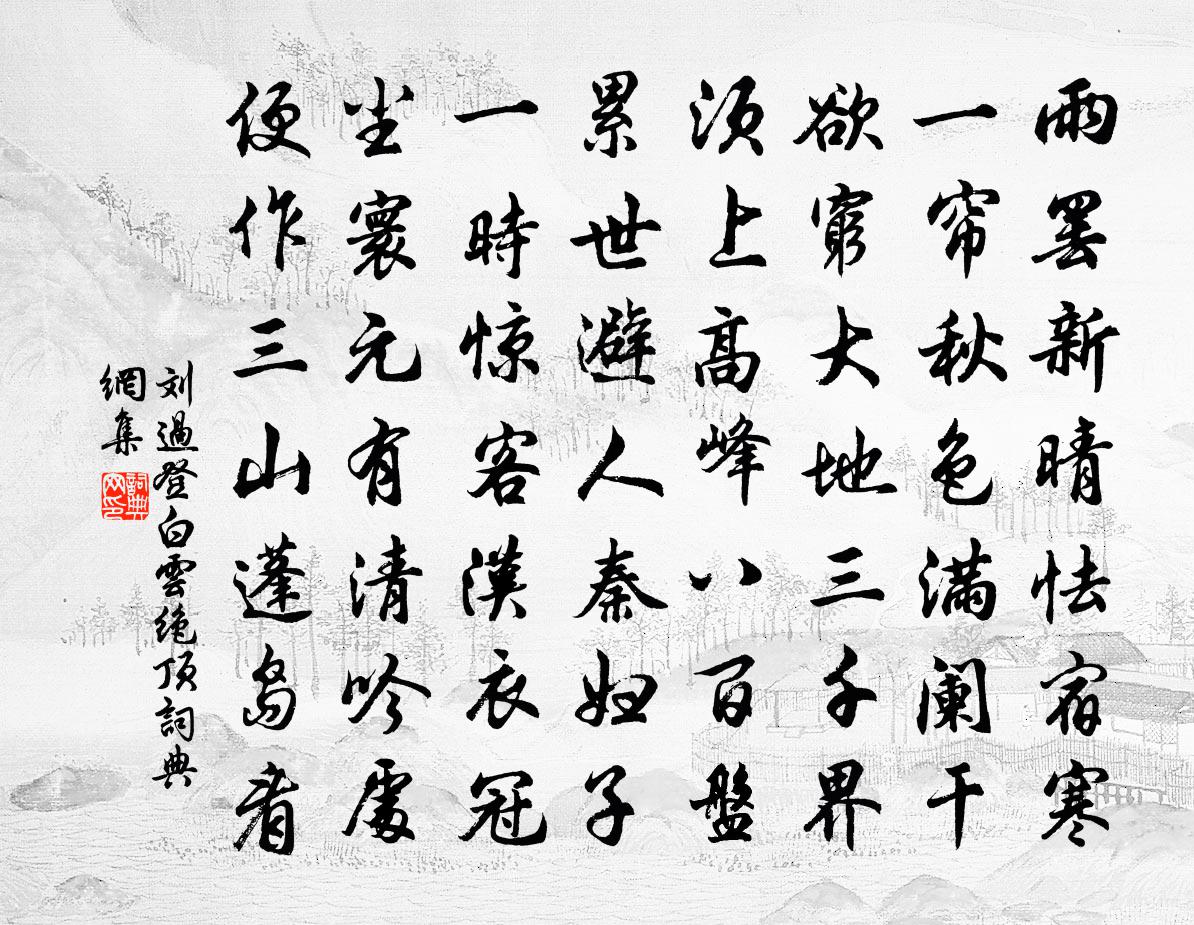 雨罢新晴怯宿寒
一帘秋色满阑干
欲穷大地三千界
须上高峰八百盤
累世避人秦妇子
一時惊客漢衣冠
尘寰元有清吟處
便作三山蓬岛看
刘過登白雲绝顶詞典
網集
詞典
网印